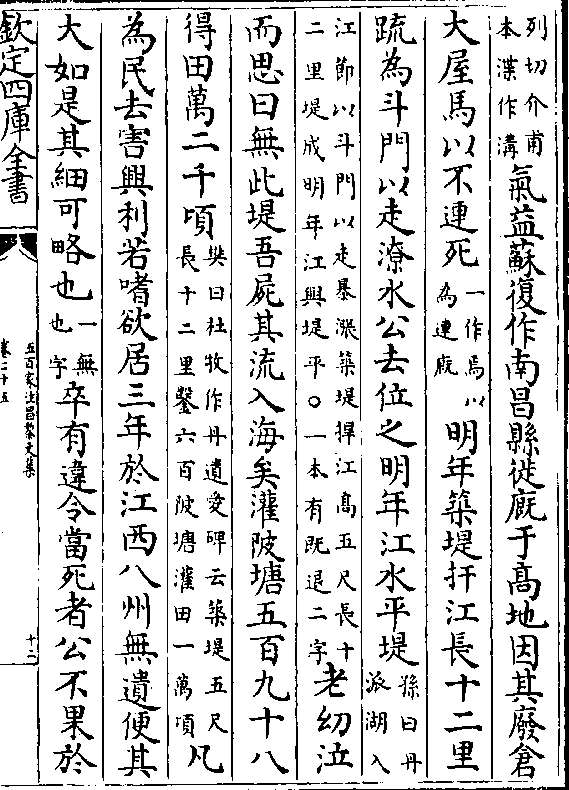 列切介甫
本渫作溝
氣益蘇復作南昌縣徙廐于高地因其廢倉
大屋馬以不連死
一作馬以
為連廐
明年築堤扞江長十二里
疏為斗門以走潦水公去位之明年江水平堤
孫曰丹
派湖入
江節以斗門以走暴漲築堤捍江高五尺長十
二里堤成明年江與堤平○一本有既退二字
老幼泣
而思曰無此堤吾屍其流入海矣灌陂塘五百九十八
得田萬二千頃
樊曰杜牧作丹遺愛碑云築堤五尺
長十二里鑿六百陂塘灌田一萬頃
凡
為民去害興利若嗜欲居三年於江西八州無遺便其
大如是其細可略也
一無
也字
卒有違令當死者公不果於
欽定四庫全書
五百家注昌黎文集
卷二十五
十二